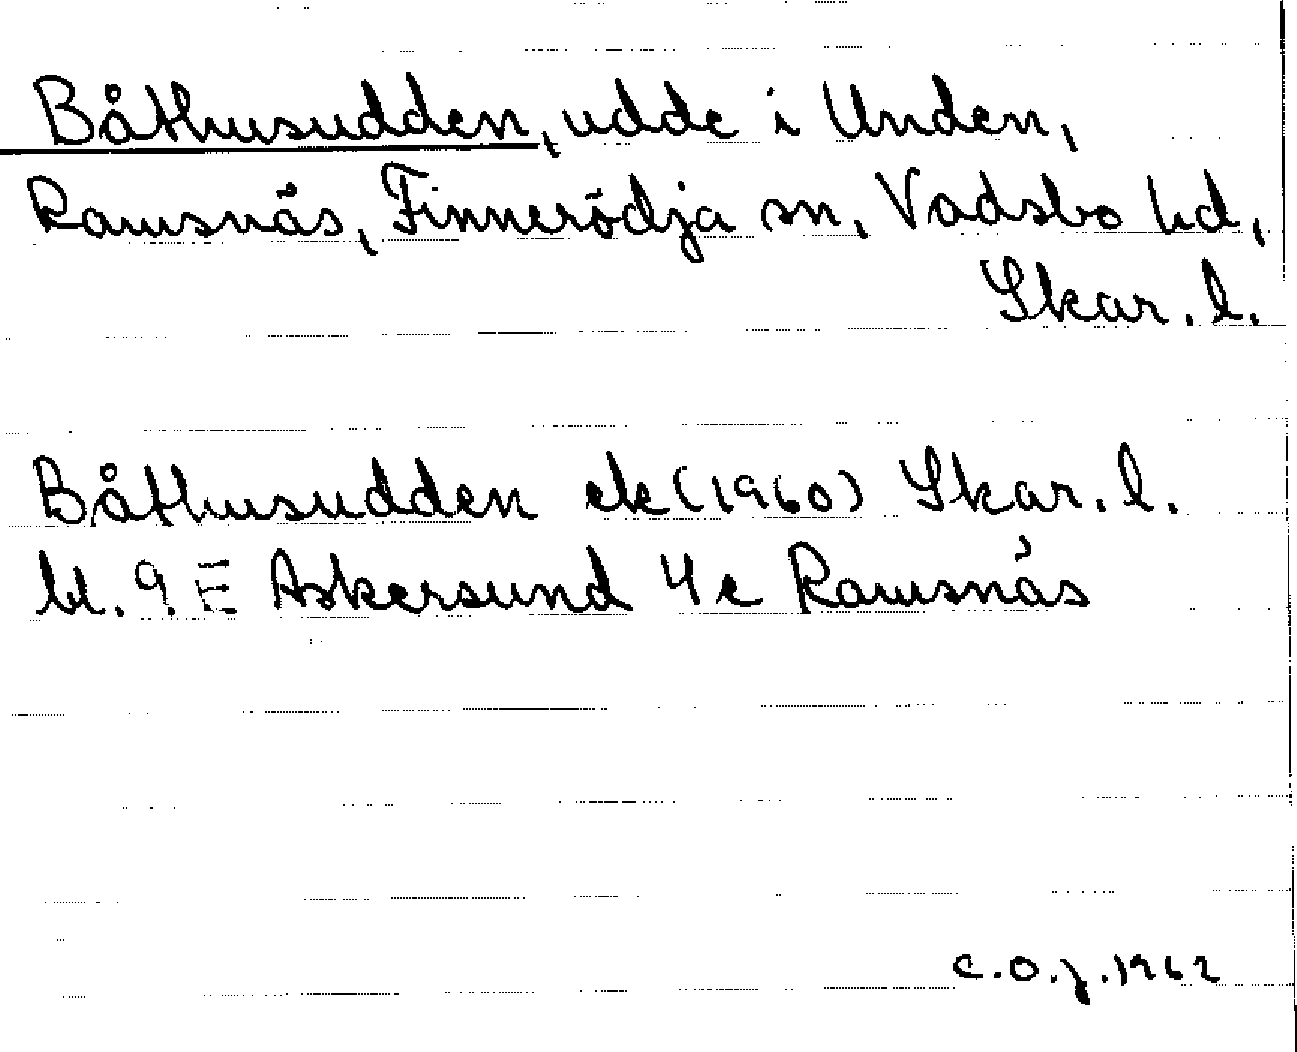 Båthusudden, udde i Unden,
Ramsnäs, Finnerödja sn, Vadsbo hd,
Skar. l.
Båthusudden ek (1960) Skar. l.
bl. 9 E Askersund 4e Ramsnäs
C.O.J. 1962